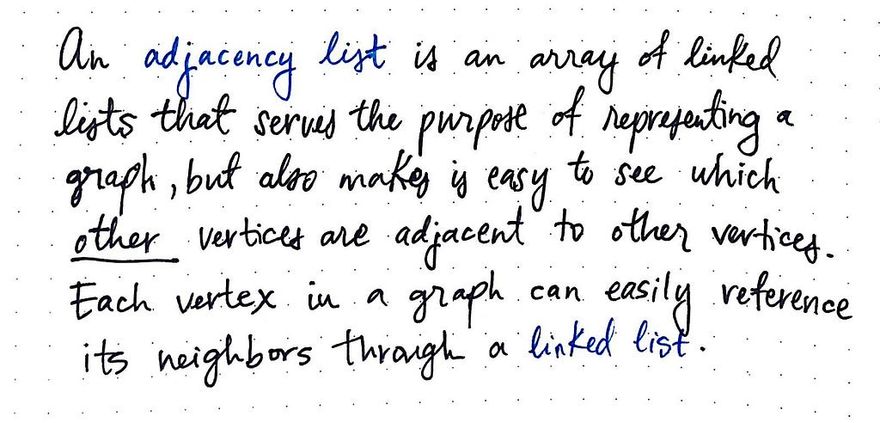 An adjacency list is an array of linked
lists that serves the purpose of representing a
graph, but also makes is easy to see which
other vertices are adjacent to other vertices.
Each vertex in a graph can easily reference
its neighbors through a linked list.